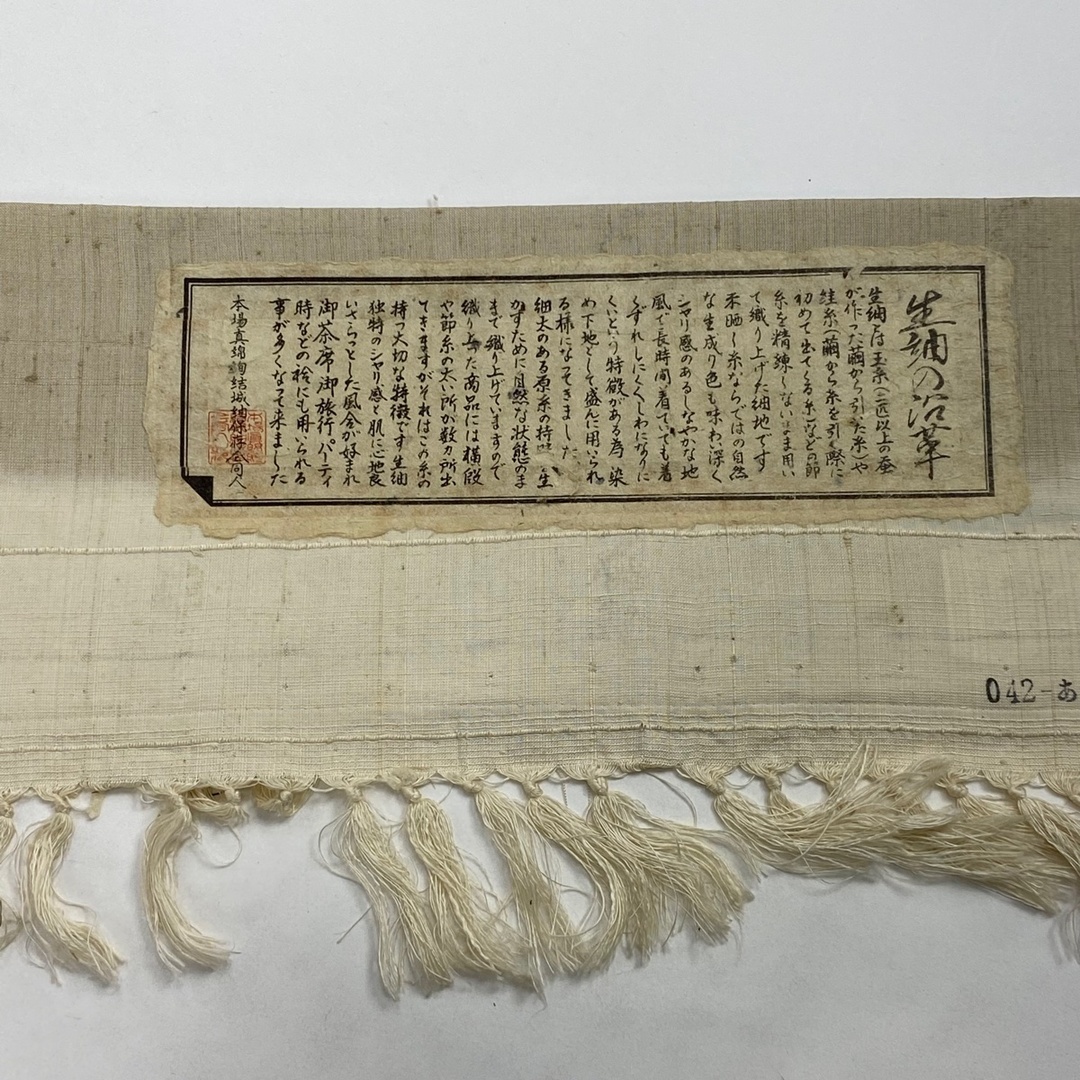 生紬の沿革
生紬とは玉糸(二匹以上の蚕
が作った繭から引いた糸)や
絓糸(繭から糸を引く際に
初めて出てくる糸)などの節
糸を精練しないまま用い
て織り上げた紬地です
未晒し糸ならではの自然
な生成り色も味わい深く
シャリ感のあるしなやかな地
風で長時間着ていても着
くずれしにくくしわになりに
くいという特徴がある為 染
め下地として盛んに用いられ
る様になってきました
細太のある原糸の持 生
かすために自然な状態のま
まで織り上げていますので
織り上った商品には横段
や節糸の太い所か数ヵ所出
てきますがそれはこの糸の
持つ大切な特徴です生紬
独特のシャリ感と肌に心地良
いさらっとした風合が好まれ
御茶席御旅行パーティ
時などの袷にも用いられる
事が多くなって来ました
本場真綿絢結城紬保存会同人
042-あ